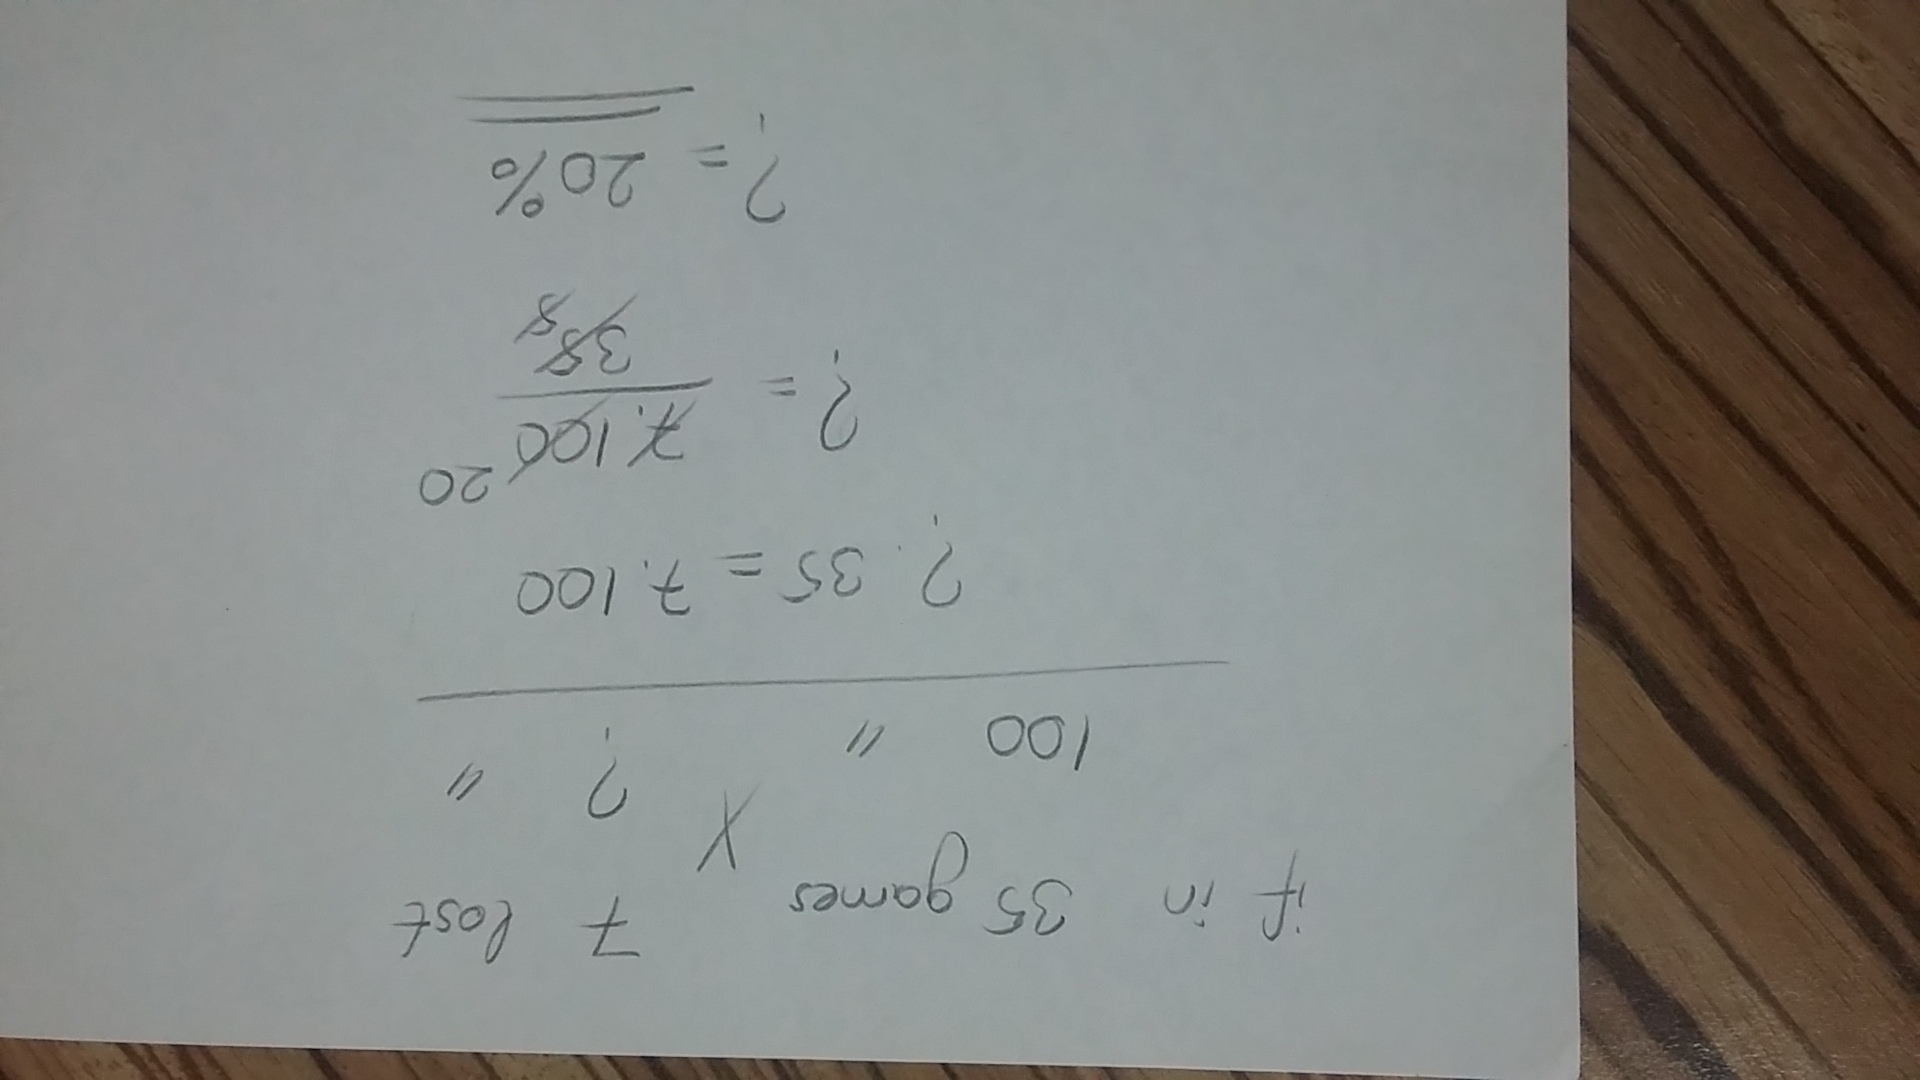 if in 35 games 7 lost
100 " ? "
X
? . 35 = 7.100
? = 7.100 20
35 5
? = 20%